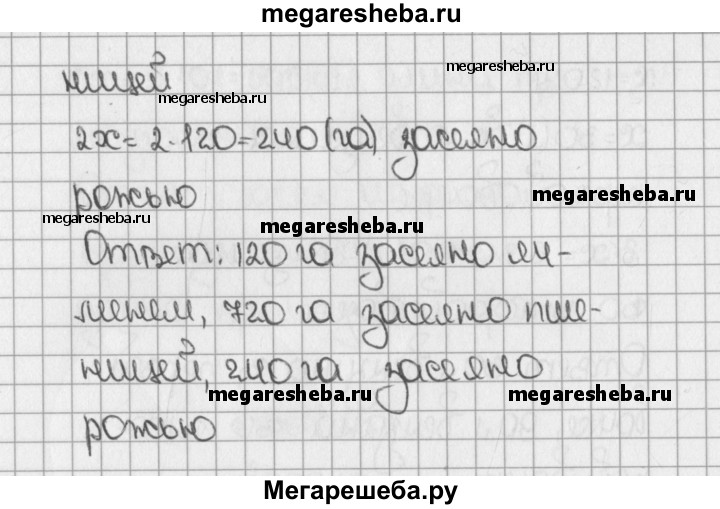 megaresheba.ru
ницей
megaresheba.ru
megaresheba.ru
2x = 2·120=240(га) засеяно
megaresheba.ru
рожью
megaresheba.ru
megaresheba.ru
Ответ: 120 га засеяно яч-
менем, 720 га засеяно пше-
ницей, 240 га засеяно
megaresheba.ru
megaresheba.ru
рожью
Мегарешеба.ру